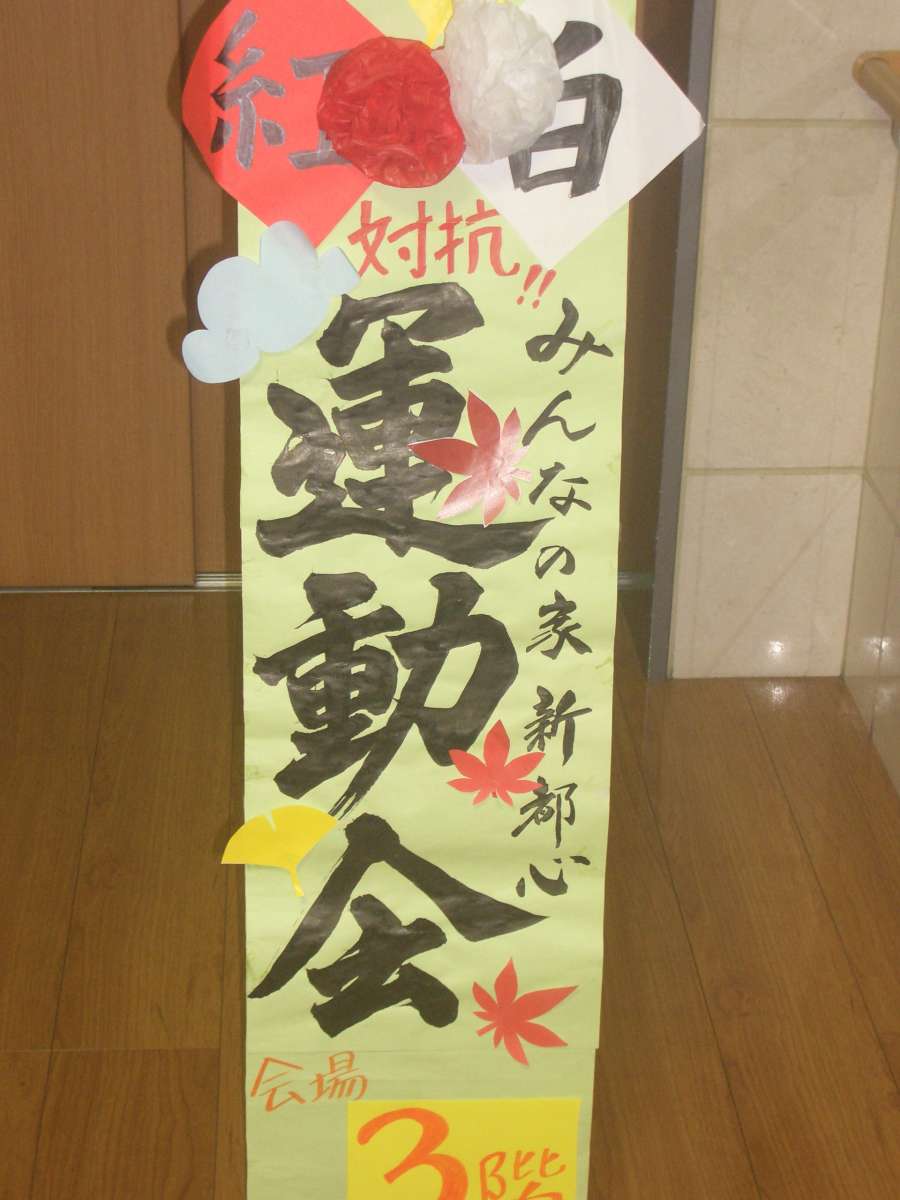 紅白
対抗!!
みんなの家 新都心
運動会
会場
3階